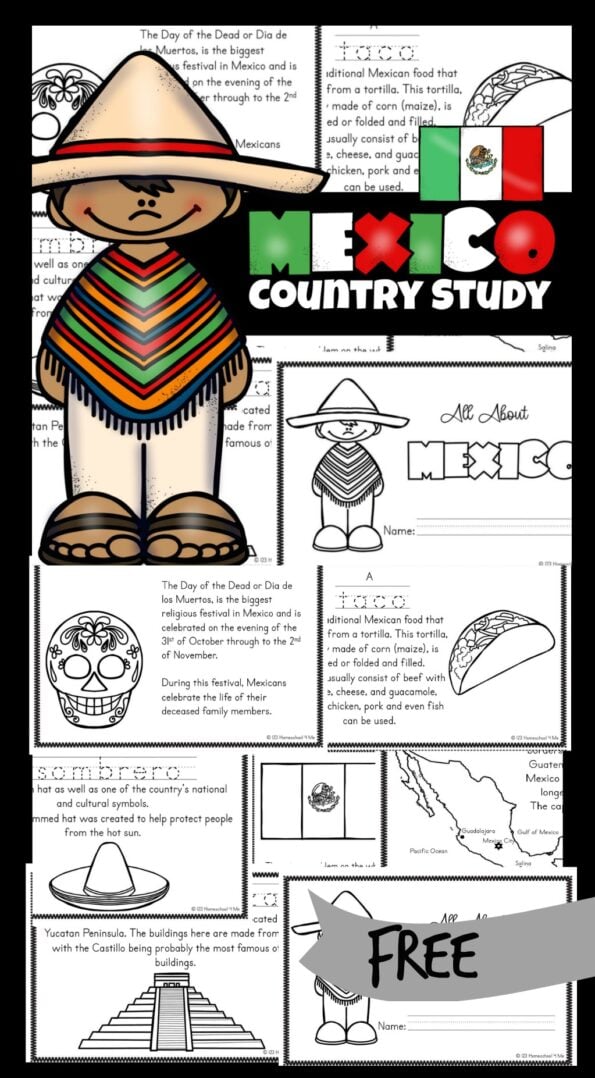 The Day of the Dead or Dia de
los Muertos, is the biggest
us festival in Mexico and is
d on the evening of the
er through to the 2nd
Mexicans
A
taco
ditional Mexican food that
from a tortilla. This tortilla,
made of corn (maize), is
ed or folded and filled.
usually consist of b
e, cheese, and guac
chicken, pork and e
can be used.
MEXICO
COUNTRY STUDY
mbr
well as one
d cultur
hat wa
from
lem on the wh
Sglina
a
cated
tan Pen
made from
h the C
famous o
All About
MEXICO
Name:
© 123 H
© 123 Homesc
The Day of the Dead or Dia de
los Muertos, is the biggest
religious festival in Mexico and is
celebrated on the evening of the
31st of October through to the 2nd
of November.
During this festival, Mexicans
celebrate the life of their
deceased family members.
© 123 Homeschool 4 Me
A
taco
ditional Mexican food that
from a tortilla. This tortilla,
made of corn (maize), is
ed or folded and filled.
usually consist of beef with
e, cheese, and guacamole,
chicken, pork and even fish
can be used.
© 123 Homeschool 4 Me
sombrero
n hat as well as one of the country's national
and cultural symbols.
mmed hat was created to help protect people
from the hot sun.
© 123 Homeschool 4 Me
lem on the wh
borders
Guaten
Mexico
longe
The ca
Guadalajara
Mexico City
Gulf of Mexico
Pacific Ocean
Sglina
ca
cated
Yucatan Peninsula. The buildings here are made from
with the Castillo being probably the most famous o
buildings.
All About
FREE
Name:
© 123 Homeschool 4 Me